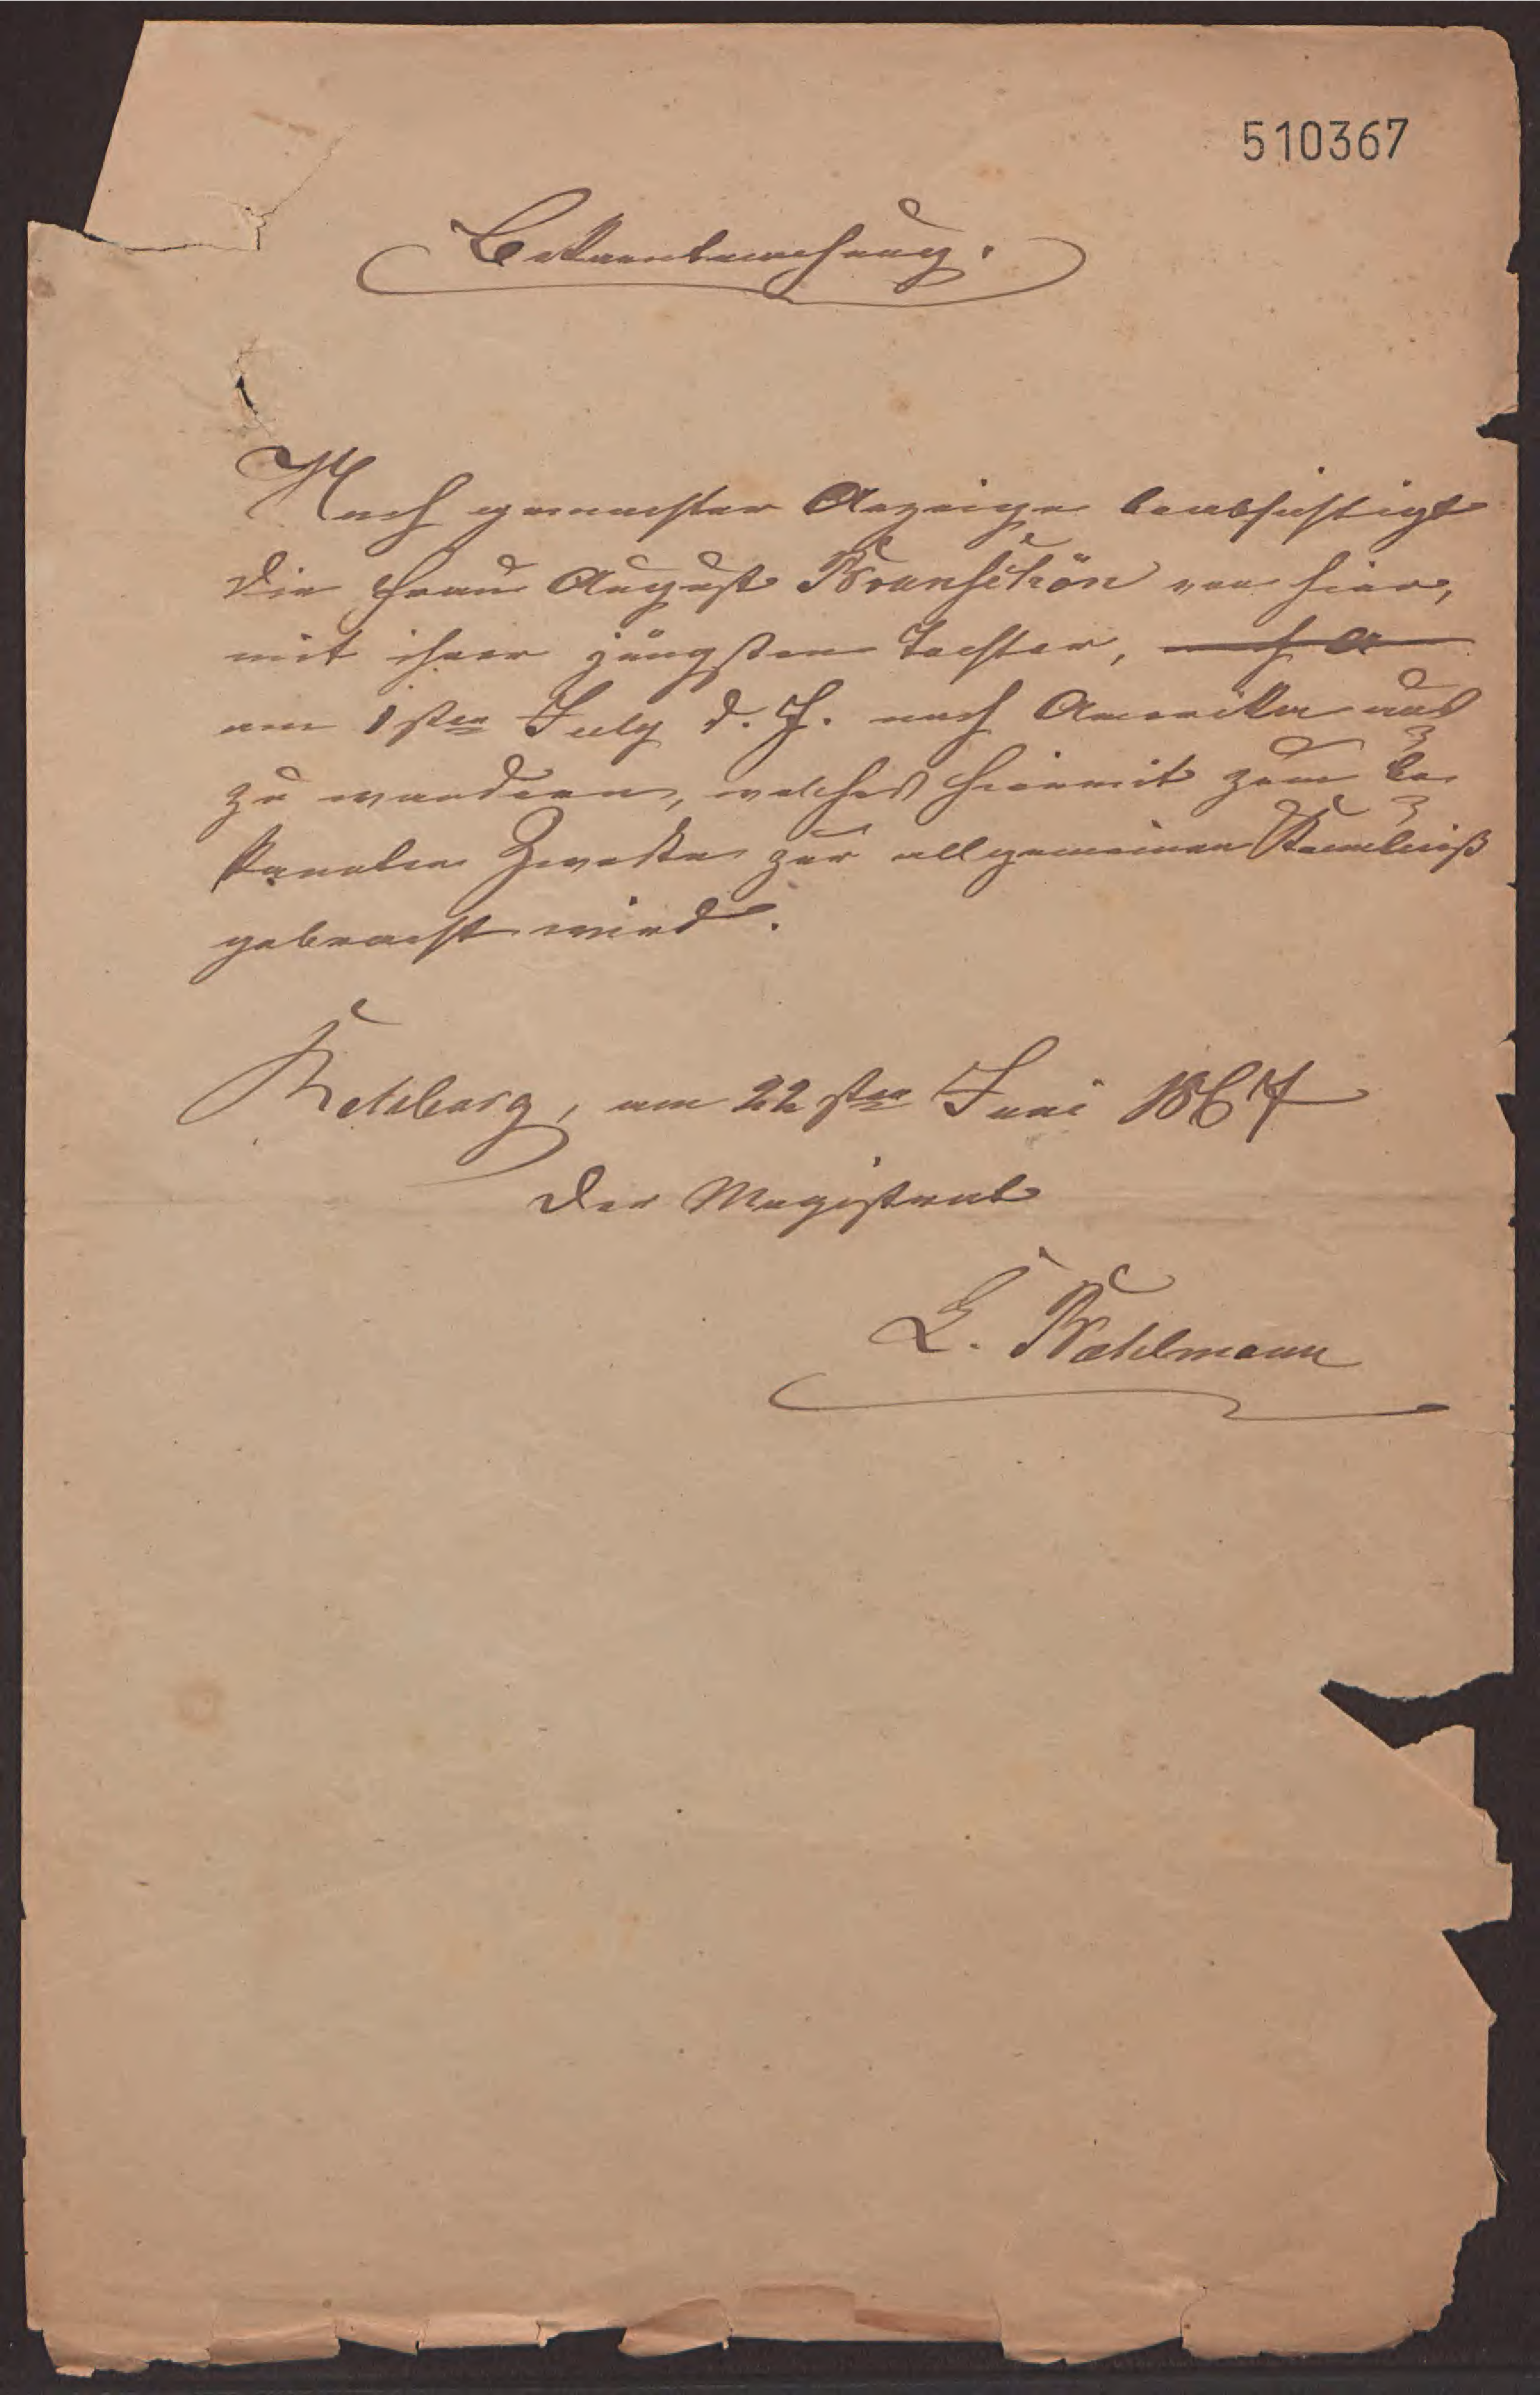 510367
Bekanntmachung.
Nach gemachter Anzeige beabsichtigt
die Frau August Branschön von hier,
mit ihrer jüngsten Tochter, nach A
am 1sten July d. J. nach Amerika aus
zu wandern, welches hiermit zum be
kannten Zwecke zur allgemeinen Kenntniß
gebracht wird.
Rehburg, am 22sten Juni 1867
Der Magistrat